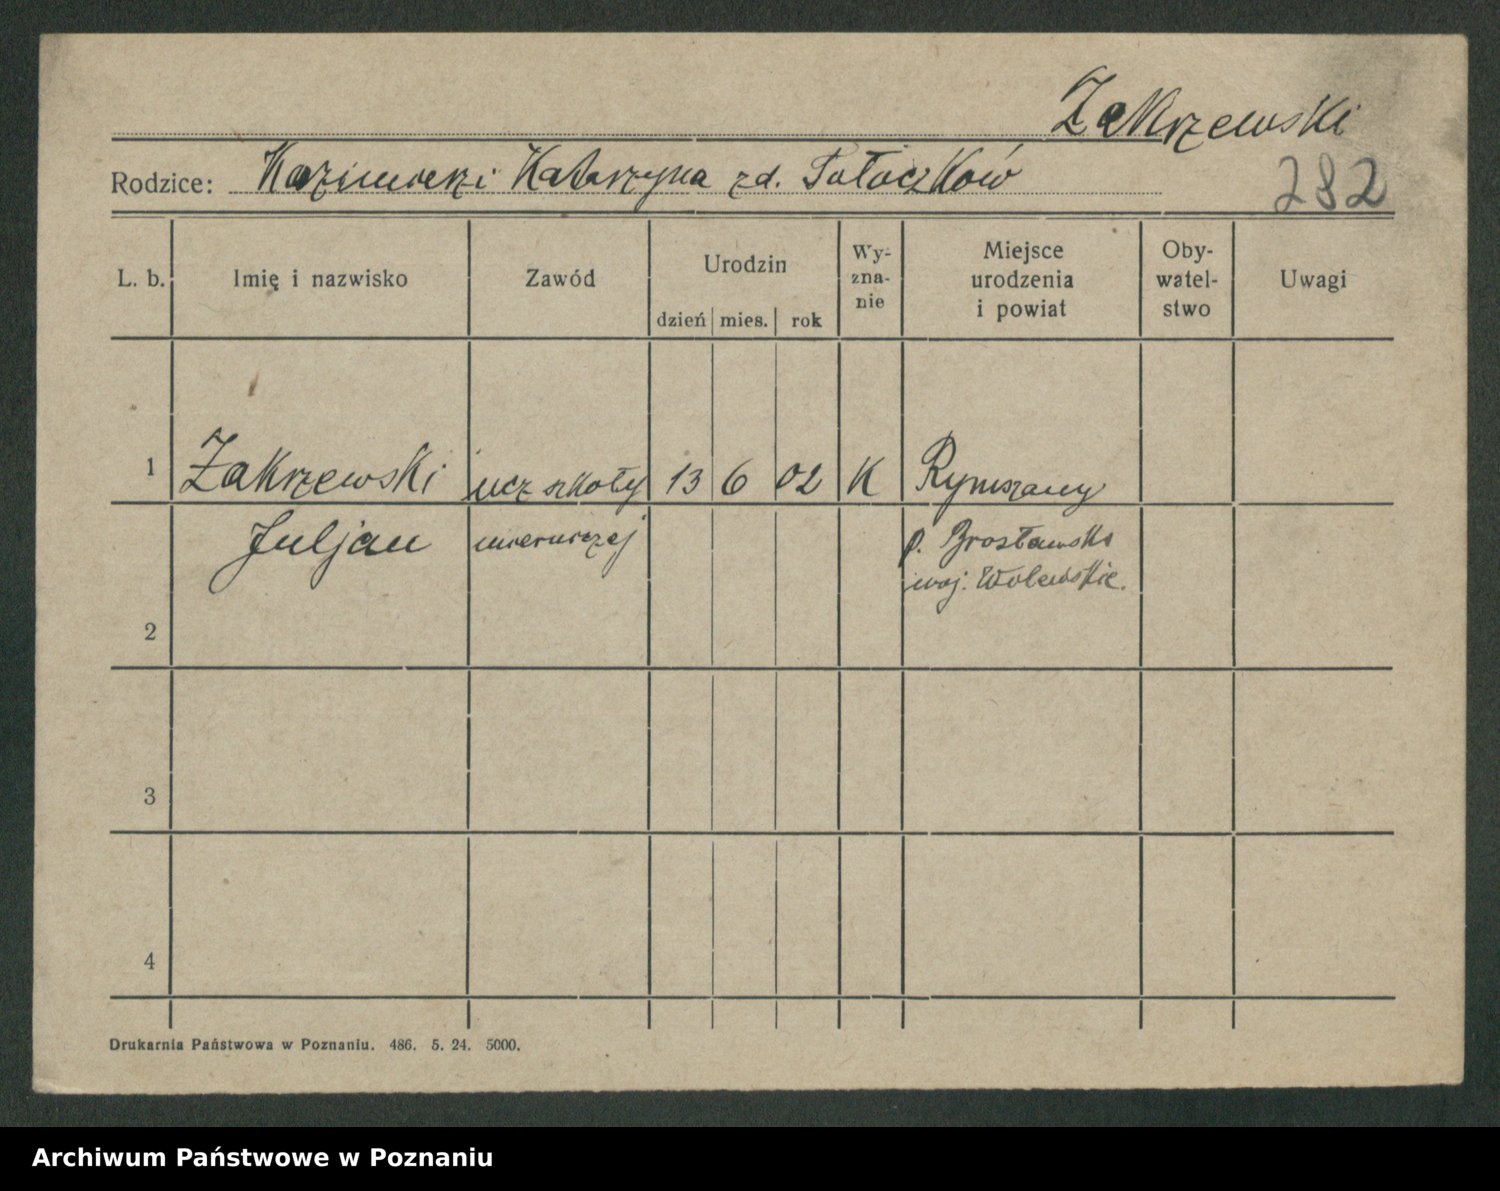 Zakrzewski
Rodzice: Kazimierz i Katarzyna zd. Tołoczków
282
L. b. Imię i nazwisko Zawód Urodzin Wy-zna-nie Miejsce urodzenia i powiat Oby-watel-stwo Uwagi
dzień mies. rok
1 Zakrzewski ucz szkoły 13 6 02 K Rymszany
Juljan mierniczej p. Brasławski
woj. Wileńskie.
2
3
4
Drukarnia Państwowa w Poznaniu. 486. 5. 24. 5000.
Archiwum Państwowe w Poznaniu